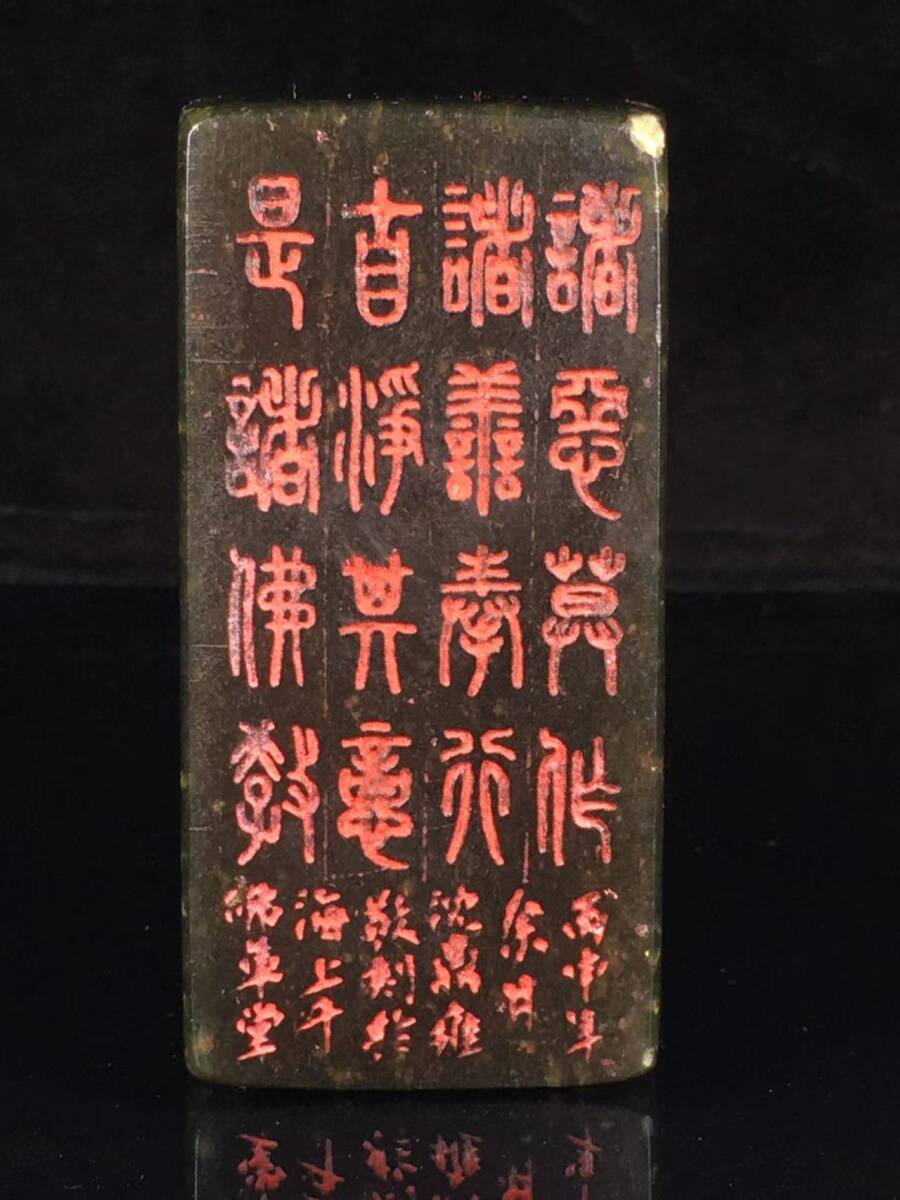 諸惡莫作
諸善奉行
自淨其意
是諸佛教
丙申年
冬日
沈鼎雍
敬刻於
海上千
佛草堂